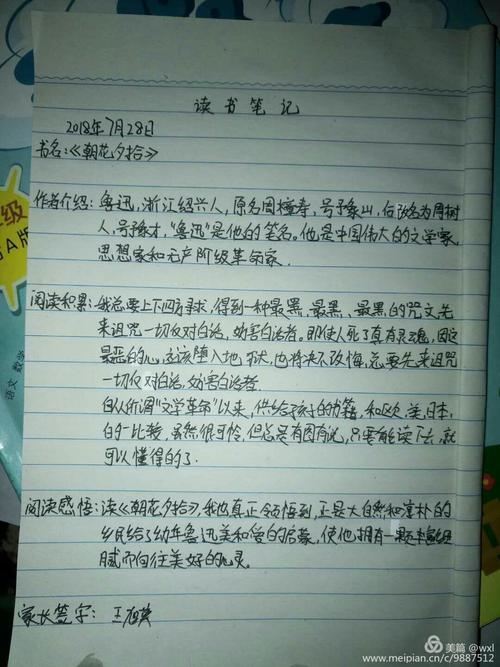 读书笔记
2018年7月28日
书名:《朝花夕拾》
作者介绍:鲁迅,浙江绍兴人,原名周樟寿,号予象山,后改名为周树
人,号予才,“鲁迅”是他的笔名。他是中国伟大的文学家,
思想家和无产阶级革命家.
阅读积累:我总要上下四方寻求,得到一种最黑、最黑、最黑的咒文,先
来诅咒一切反对白话,妨害白话者。即使人死了真有灵魂,因这
最恶的心,应该堕入地狱,也将决不改悔,总要先来诅咒
一切反对白话,妨害白话者
自从所谓“文学革命”以来,供给孩子的书籍,和欧,美,日本,
的一比较,虽然很可怜,但总是有图有说,只要能读下去,就
可以懂得的了.
阅读感悟:读《朝花夕拾》,我也真正领悟到,正是大自然和淳朴的
乡民给了幼年鲁迅美和爱的启蒙,使他拥有一颗丰富细
腻而向往美好的心灵。
家长签字: 王
美篇 @wxl
www.meipian.cn/c/9887512
语文 数学
A版